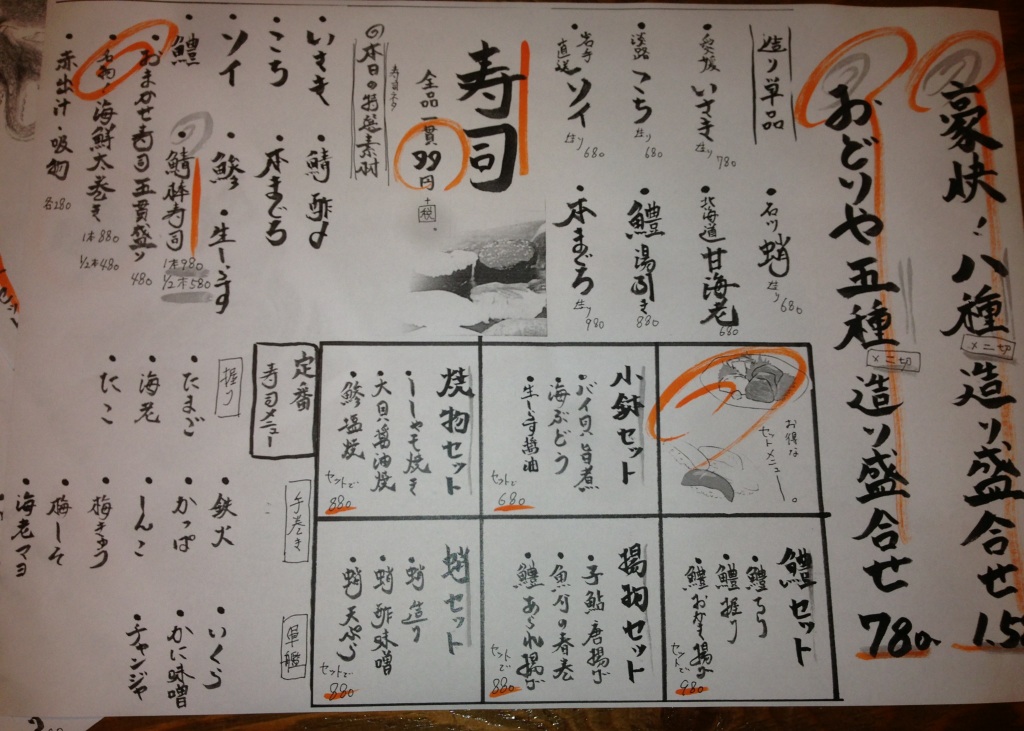 豪快!八種造り盛合せ 1.5
メニ切
おどりや五種造り盛合せ 780
メニ切
造り単品
・石川 蛸 造り 680
愛媛 いさき 造り 780
・北海道 甘海老 680
淡路 こち 造り 680
・鱧湯引き 880
岩手直送 ソイ 造り 680
・本まぐろ 造り 980
寿司
全品一貫99円
+税
寿司ネタ
◎本日の特選素材
・いさき
・鯖
・酢〆
・こち
・本まぐろ
・ソイ
・鯵
・生しらす
・鱧
・鯖棒寿司 1本980
½本580
・おまかせ寿司五貫盛り 480
・名物!海鮮太巻き 1本880
½本480
・赤出汁・吸物 各280
お得な
セットメニュー。
小鉢セット
・バイ貝旨煮
・海ぶどう
・生しらす醤油
セットで
680
焼物セット
・ししゃも焼き
・大貝醤油焼
・鯵塩焼
セットで
880
鱧セット
・鱧ちり
・鱧握り
・鱧おかき揚げ
セットで
980
揚物セット
・子鮎唐揚げ
・魚介の春巻
・鱧あられ揚げ
セットで
880
蛸セット
・蛸造り
・蛸酢味噌
・蛸天ぷら
セットで
880
定番
寿司メニュー
握り
・たまご
・海老
・たこ
手巻き
・鉄火
・かっぱ
・しんこ
・梅きゅう
・梅しそ
・海老マヨ
軍艦
・いくら
・かに味噌
・チャンジャ